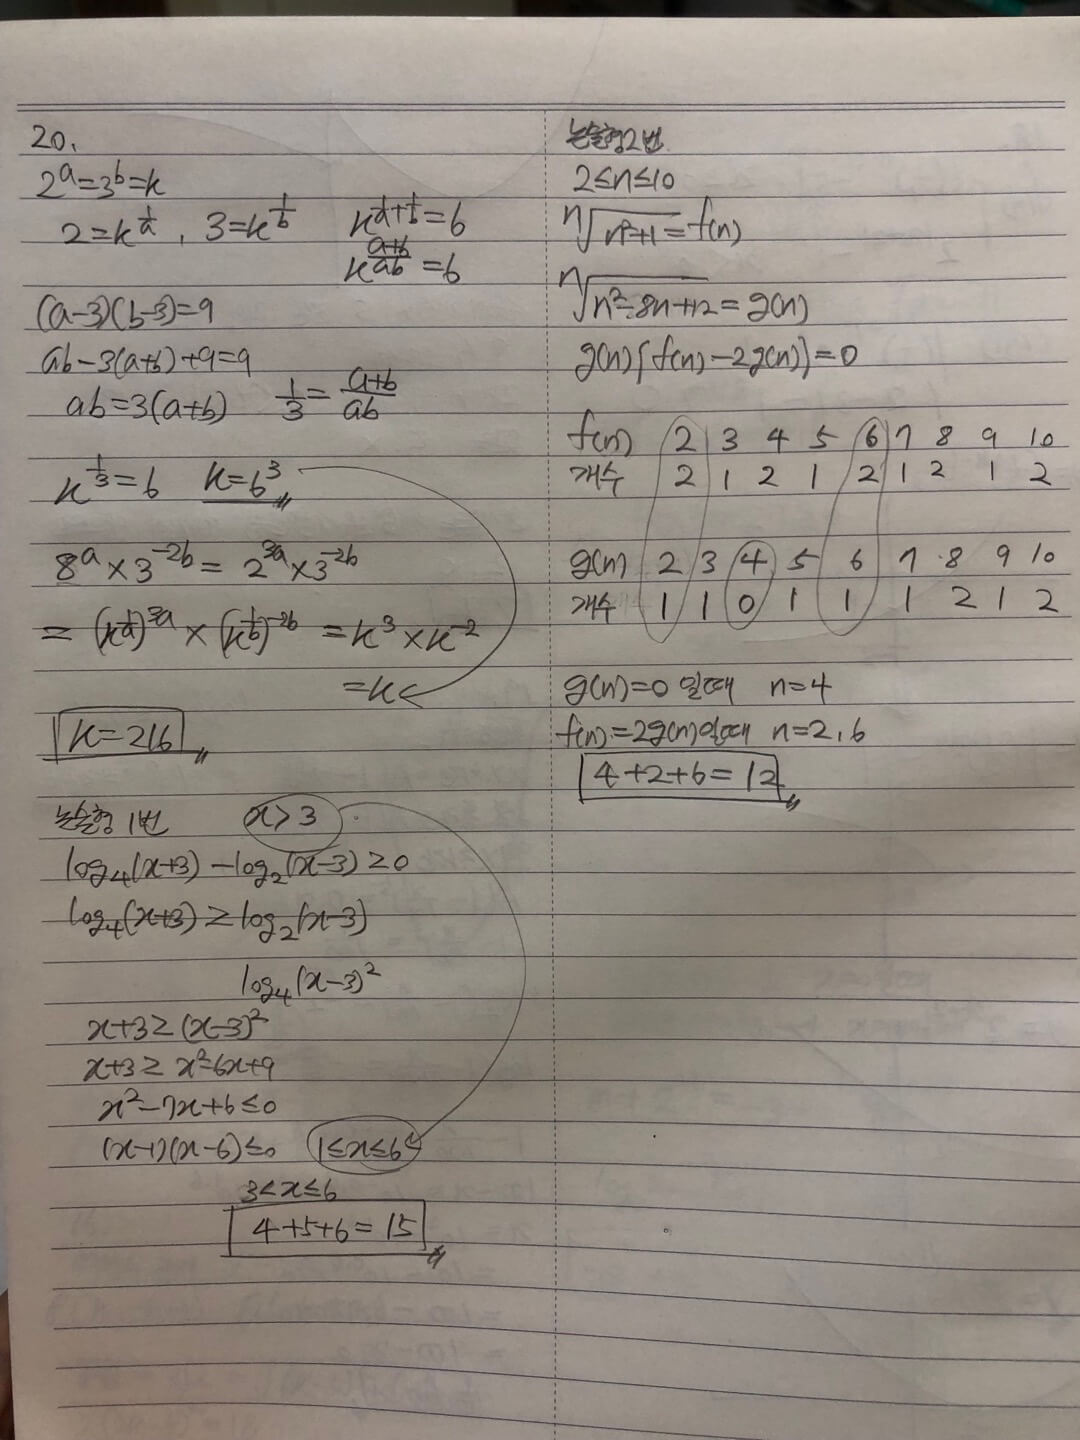 20.
2^a=3^b=k
2=k^(1/a), 3=k^(1/b) k^(1/a+1/b)=6
k^((a+b)/ab)=6
(a-3)(b-3)=9
ab-3(a+b)+9=9
ab=3(a+b) 1/3=(a+b)/ab
k^(1/3)=6 k=6^3
8^a×3^(-2b)=2^(3a)×3^(-2b)
=(k^(1/a))^(3a)×(k^(1/b))^(-2b)=k^3×k^(-2)
=k
k=216
논술형 1번 x>3
log₄(x+3)-log₂(x-3)≥0
log₄(x+3)≥log₂(x-3)
log₄(x-3)²
x+3≥(x-3)²
x+3≥x²-6x+9
x²-7x+6≤0
(x-1)(x-6)≤0 1≤x≤6
3<x≤6
4+5+6=15
논술형2번
2≤n≤10
ⁿ√(n²+1)=f(n)
ⁿ√(n²-8n+12)=g(n)
g(n){f(n)-2g(n)}=0
f(n) 2 3 4 5 6 7 8 9 10
개수 2 1 2 1 2 1 2 1 2
g(n) 2 3 4 5 6 7 8 9 10
개수 1 1 0 1 1 1 2 1 2
g(n)=0 일때 n=4
f(n)=2g(n)일때 n=2,6
4+2+6=12